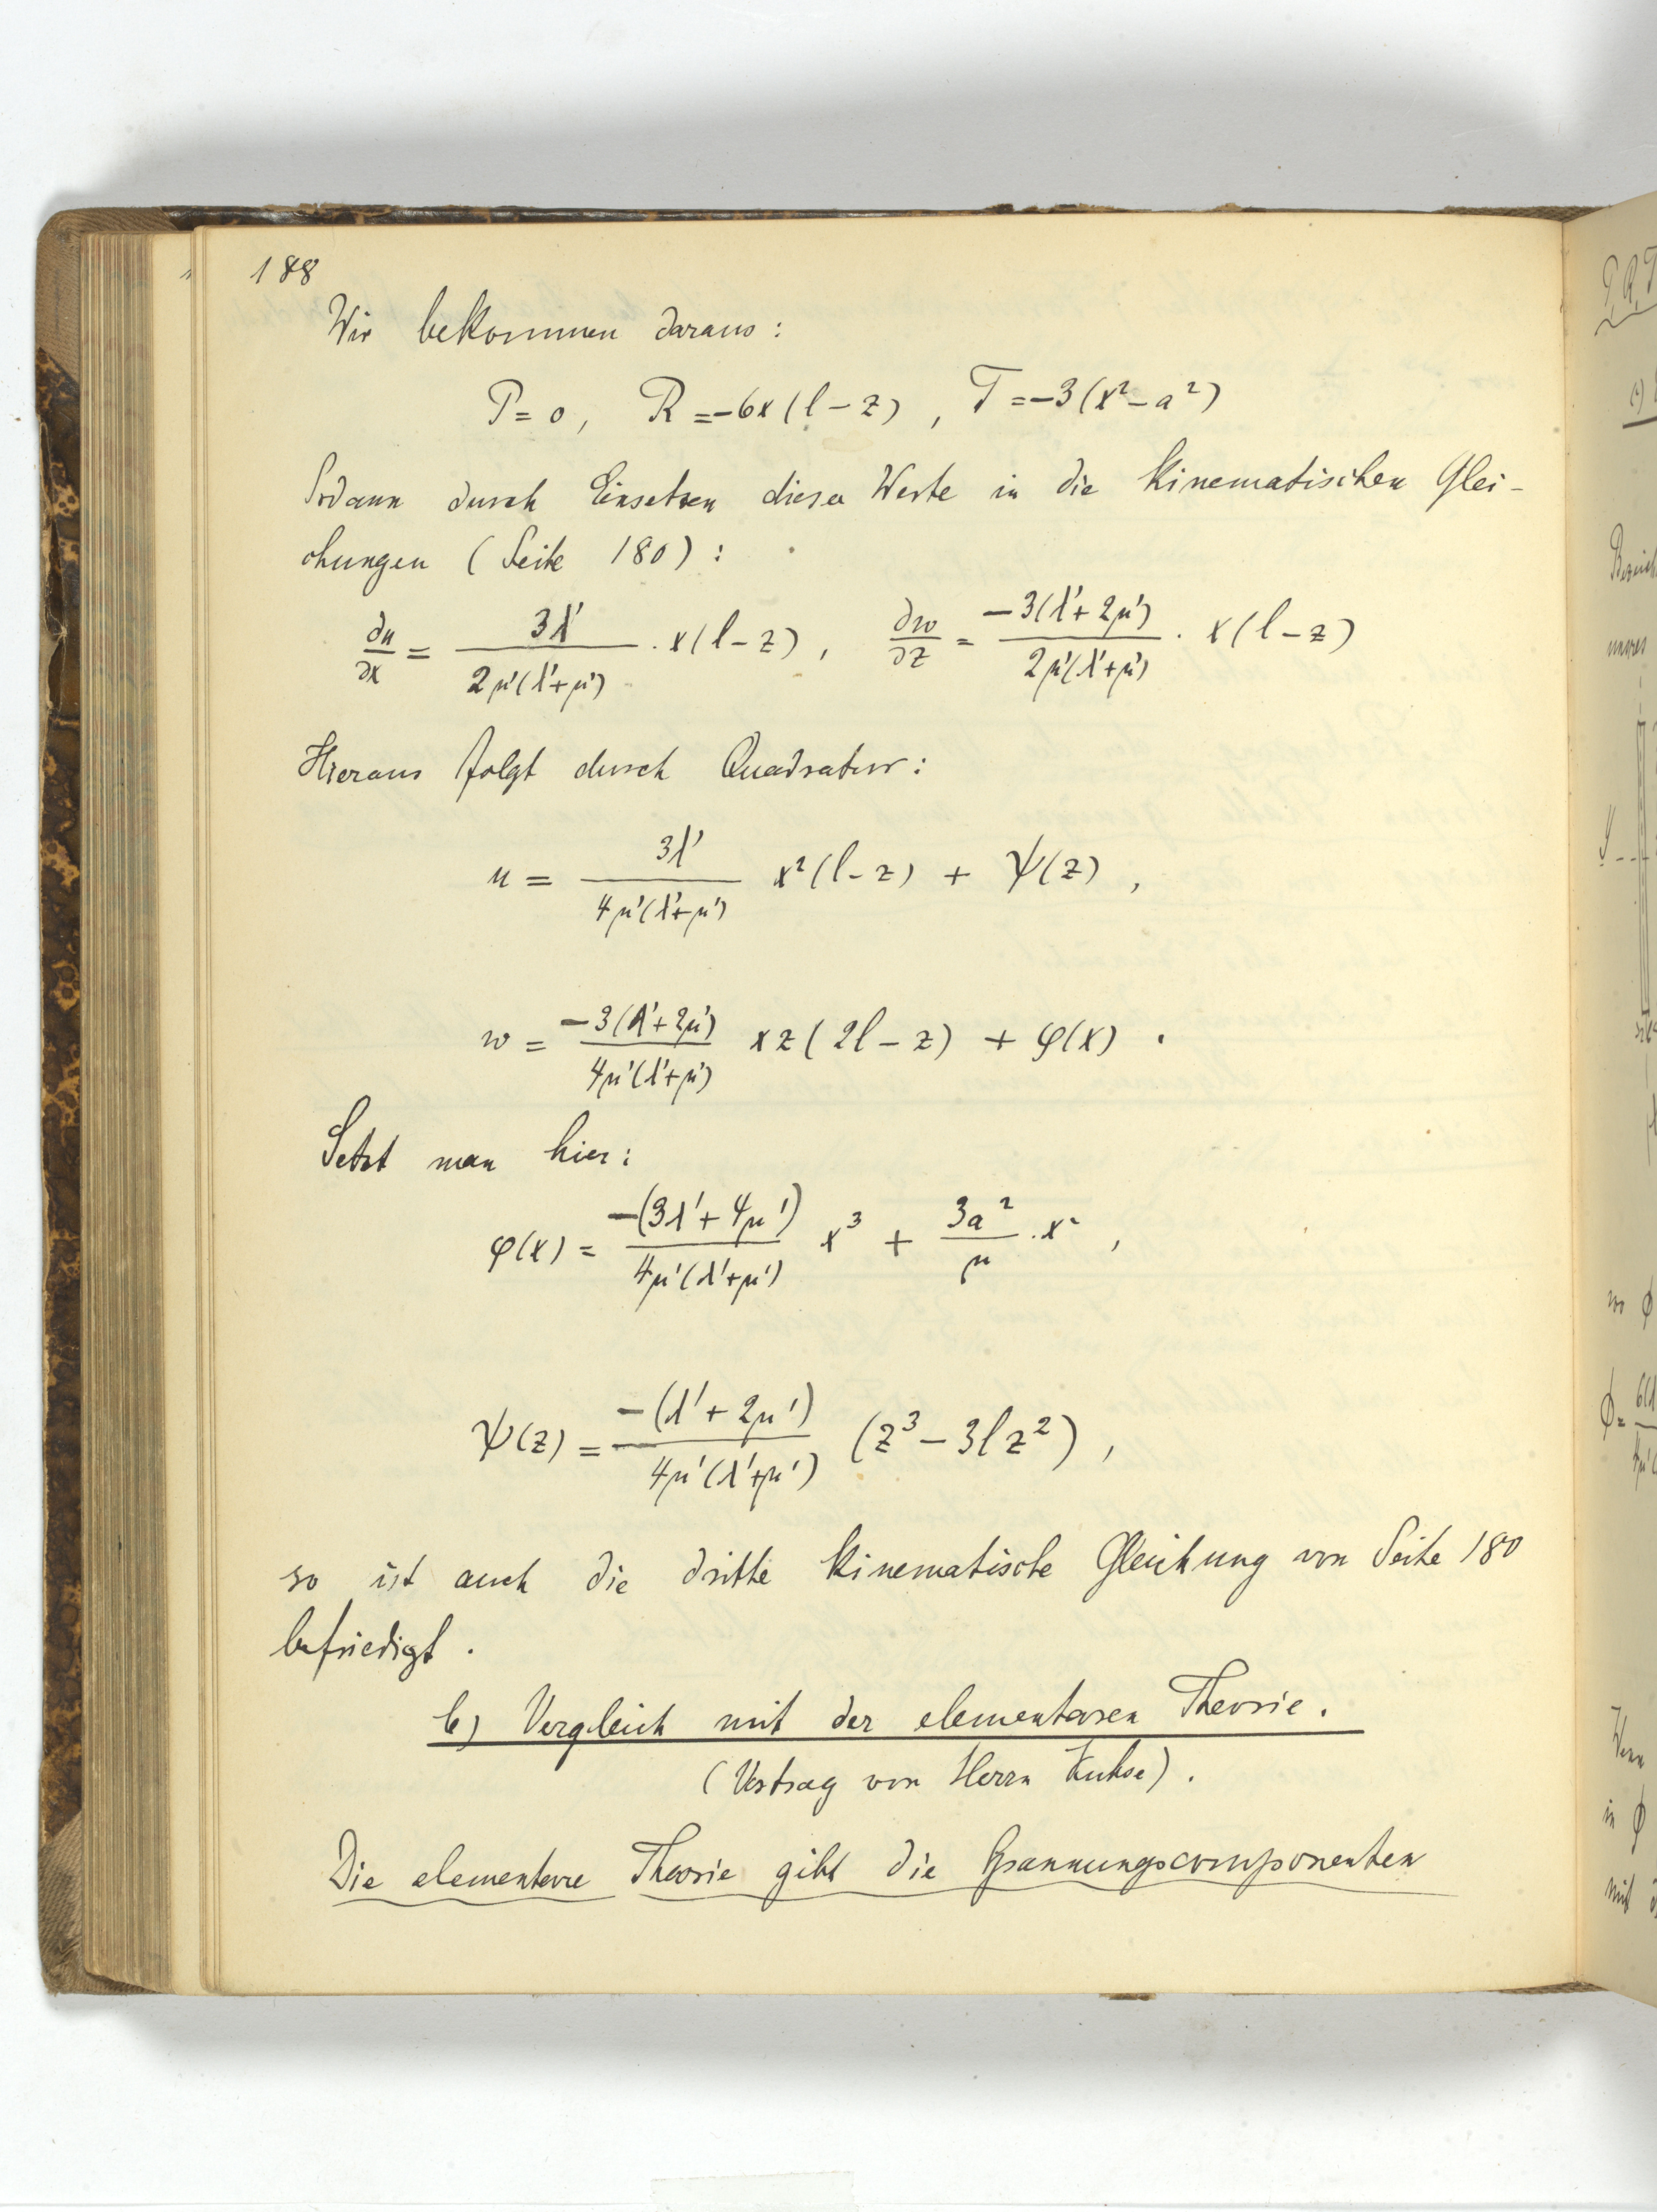 188
Wir bekommen daraus:
P = 0, R = -6x(l-z), T = -3(x²-a²)
Sodann durch Einsetzen dieser Werte in die kinematischen Glei-
chungen (Seite 180):
∂u/∂x = 3λ'/2μ'(λ'+μ') · x(l-z), ∂w/∂z = -3(λ'+2μ')/2μ'(λ'+μ') · x(l-z)
Hieraus folgt durch Quadratur:
u = 3λ'/4μ'(λ'+μ') x²(l-z) + ψ(z),
w = -3(λ'+2μ')/4μ'(λ'+μ') xz(2l-z) + φ(x).
Setzt man hier:
φ(x) = -(3λ'+4μ')/4μ'(λ'+μ') x³ + 3a²/μ · x²,
ψ(z) = -(λ'+2μ')/4μ'(λ'+μ') (z³-3lz²),
so ist auch die dritte kinematische Gleichung von Seite 180
befriedigt.
b) Vergleich mit der elementaren Theorie.
(Vortrag von Herrn).
Die elementare Theorie gibt die Spannungscomponenten